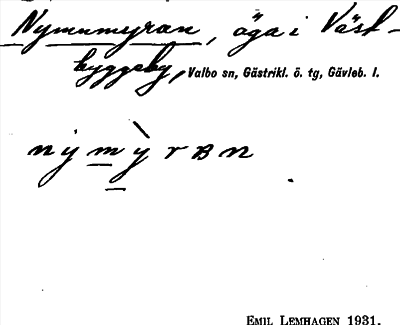 Nymumyran, äga i Väst-
byggeby, Valbo sn, Gästrikl. ö. tg, Gävleb. l.
nýmỳran
EMIL LEMHAGEN 1931.